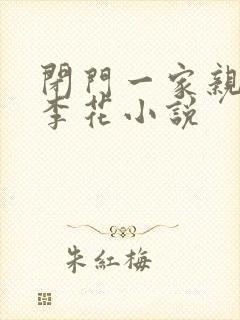 閉門一家親
李花小說
朱紅梅